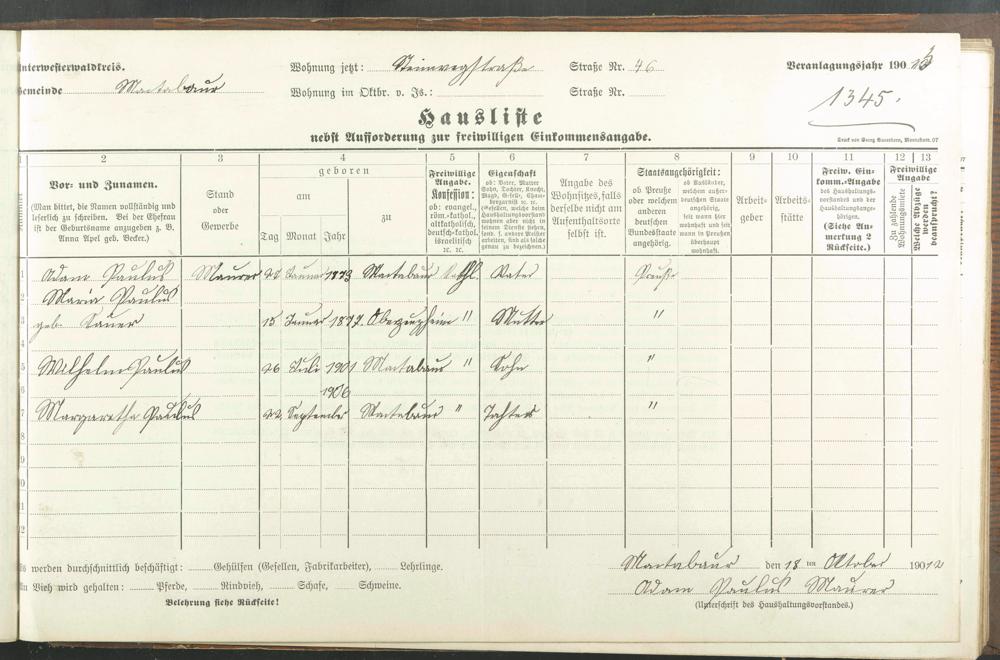 Unterwesterwaldkreis. Wohnung jetzt: Steinwegstraße Straße Nr. 46 Veranlagungsjahr 190
Gemeinde Montabaur Wohnung im Oktbr. v. Js.: Straße Nr.
1345.
Hausliste
nebst Aufforderung zur freiwilligen Einkommensangabe.
1 2 3 4 5 6 7 8 9 10 11 12 13
Vor- und Zunamen.
(Man bittet, die Namen vollständig und
leserlich zu schreiben. Bei der Ehefrau
ist der Geburtsname anzugeben z. B.
Anna Apel geb. Becker.)
Stand
oder
Gewerbe
geboren
am
zu
Tag Monat Jahr
Freiwillige
Angabe.
Konfession:
ob: evangel.,
röm.-kathol.,
altkatholisch,
deutsch-kathol.,
israelitisch
2c. 2c.
Eigenschaft
ob: Vater, Mutter
Sohn, Tochter, Knecht,
Magd, Geselle, Cham-
bregarnist 2c. 2c.
(Gesellen, welche beim
Haushaltungsvorstand
wohnen aber nicht in
seinem Dienste stehen,
sond. f. andere Meister
arbeiten, sind als solche
genau zu bezeichnen.)
Angabe des
Wohnsitzes, falls
derselbe nicht am
Aufenthaltsorte
selbst ist.
Staatsangehörigkeit:
ob Preuße
oder welchem
anderen
deutschen
Bundesstaate
angehörig.
ob Ausländer,
welchem außer-
deutschen Staate
angehörig,
seit wann hier
wohnhaft und seit
wann in Preußen
überhaupt
wohnhaft.
Arbeit-
geber
Arbeits-
stätte
Freiw. Ein-
komm.-Angabe
des Haushaltungs-
vorstandes und der
Haushaltungsange-
hörigen.
(Siehe An-
merkung 2
Rückseite.)
Freiwillige
Angabe
Zu zahlende
Wohnungsmiete
Welche Abzüge
werden
beansprucht?
1 Adam Paulus Maurer 22 Januar 1873 Montabaur kathl. Vater Preuße
2 Maria Paulus
3 geb. Sauer 15 Januar 1877. Oberzeuzheim " Mutter "
4
5 Wilhelm Paulus 26 Juli 1901 Montabaur " Sohn "
6 1906
7 Margaretha Paulus 22 September Montabaur " Tochter "
8
9
10
11
12
Es werden durchschnittlich beschäftigt: Gehülfen (Gesellen, Fabrikarbeiter), Lehrlinge.
An Vieh wird gehalten: Pferde, Rindvieh, Schafe, Schweine.
Belehrung siehe Rückseite!
Montabaur den 18 ten Oktober 19012
Adam Paulus Maurer
(Unterschrift des Haushaltungsvorstandes.)